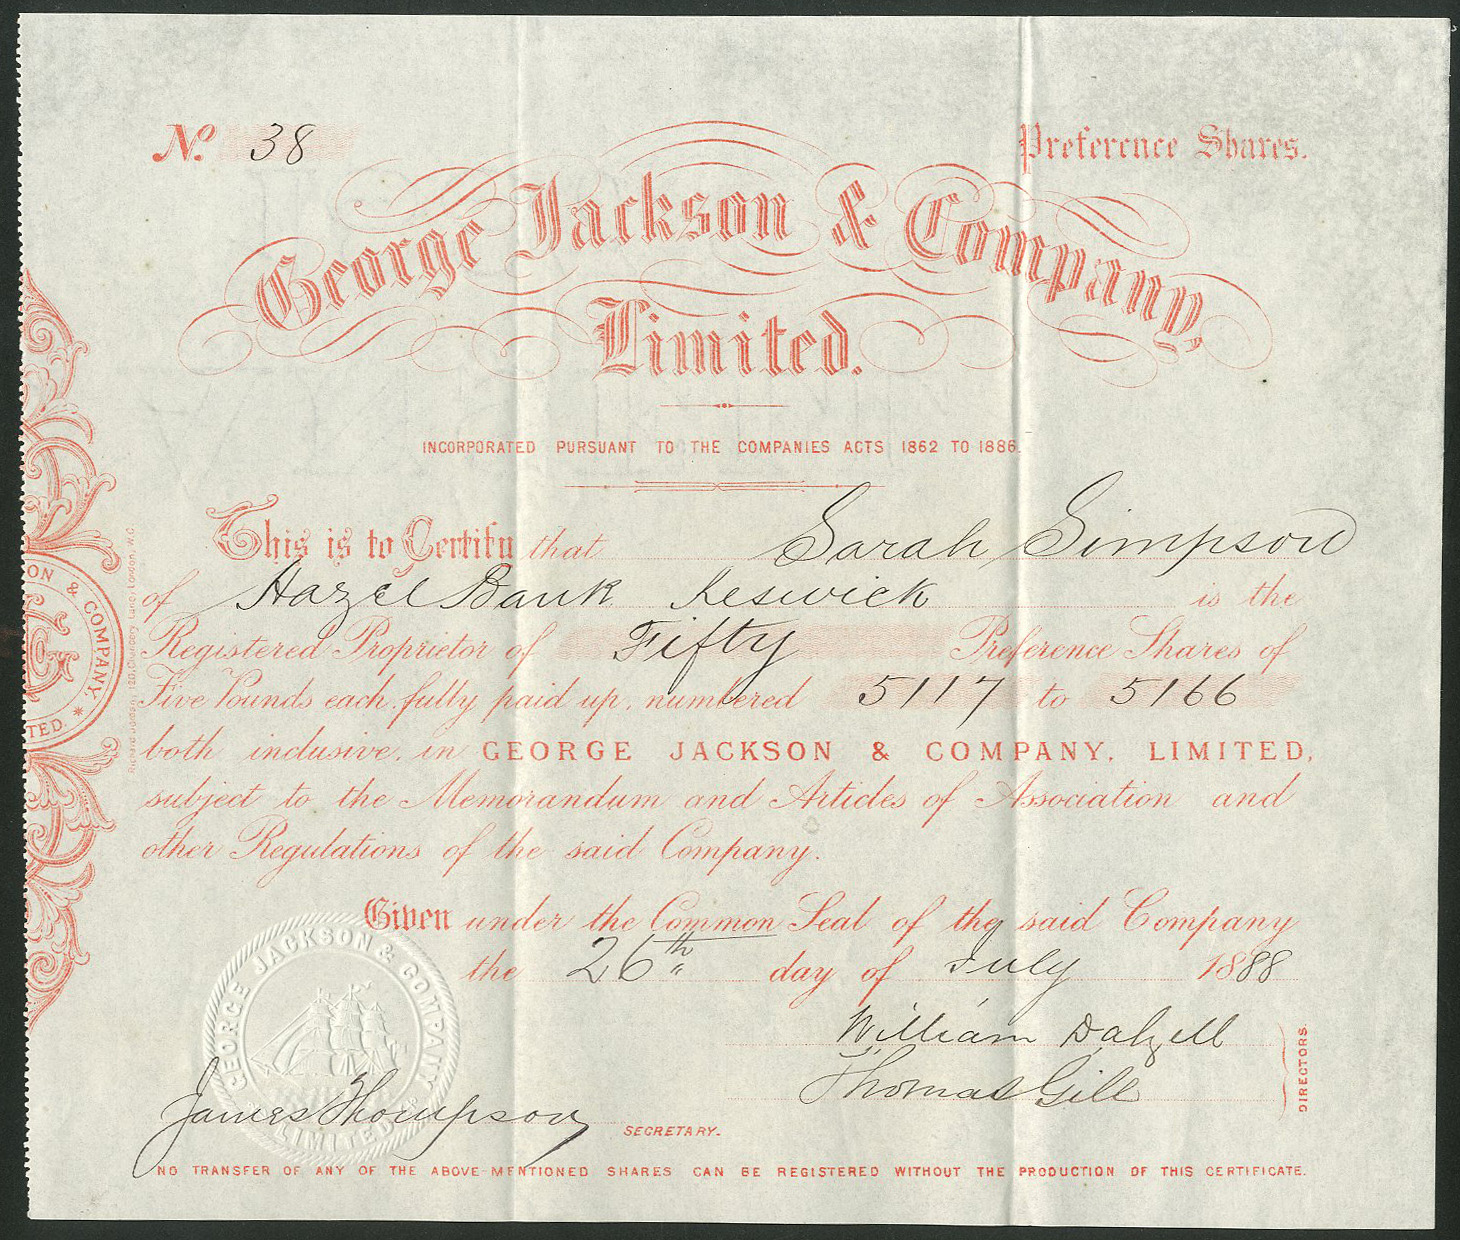 No. 38
Preference Shares.
George Jackson & Company,
Limited.
INCORPORATED PURSUANT TO THE COMPANIES ACTS 1862 TO 1886.
This is to Certify that Sarah Simpson
of Hazel Bank Keswick is the
Registered Proprietor of Fifty Preference Shares of
Five Pounds each, fully paid up, numbered 5117 to 5166
both inclusive, in GEORGE JACKSON & COMPANY, LIMITED,
subject to the Memorandum and Articles of Association and
other Regulations of the said Company.
Given under the Common Seal of the said Company
the 26th day of July 1888
William Dalzell
Thomas Gill
DIRECTORS.
James Thompson SECRETARY.
NO TRANSFER OF ANY OF THE ABOVE-MENTIONED SHARES CAN BE REGISTERED WITHOUT THE PRODUCTION OF THIS CERTIFICATE.
GEORGE JACKSON & COMPANY
LIMITED
ON & COMPANY
TED.
Chancery Lane, London, W.C.